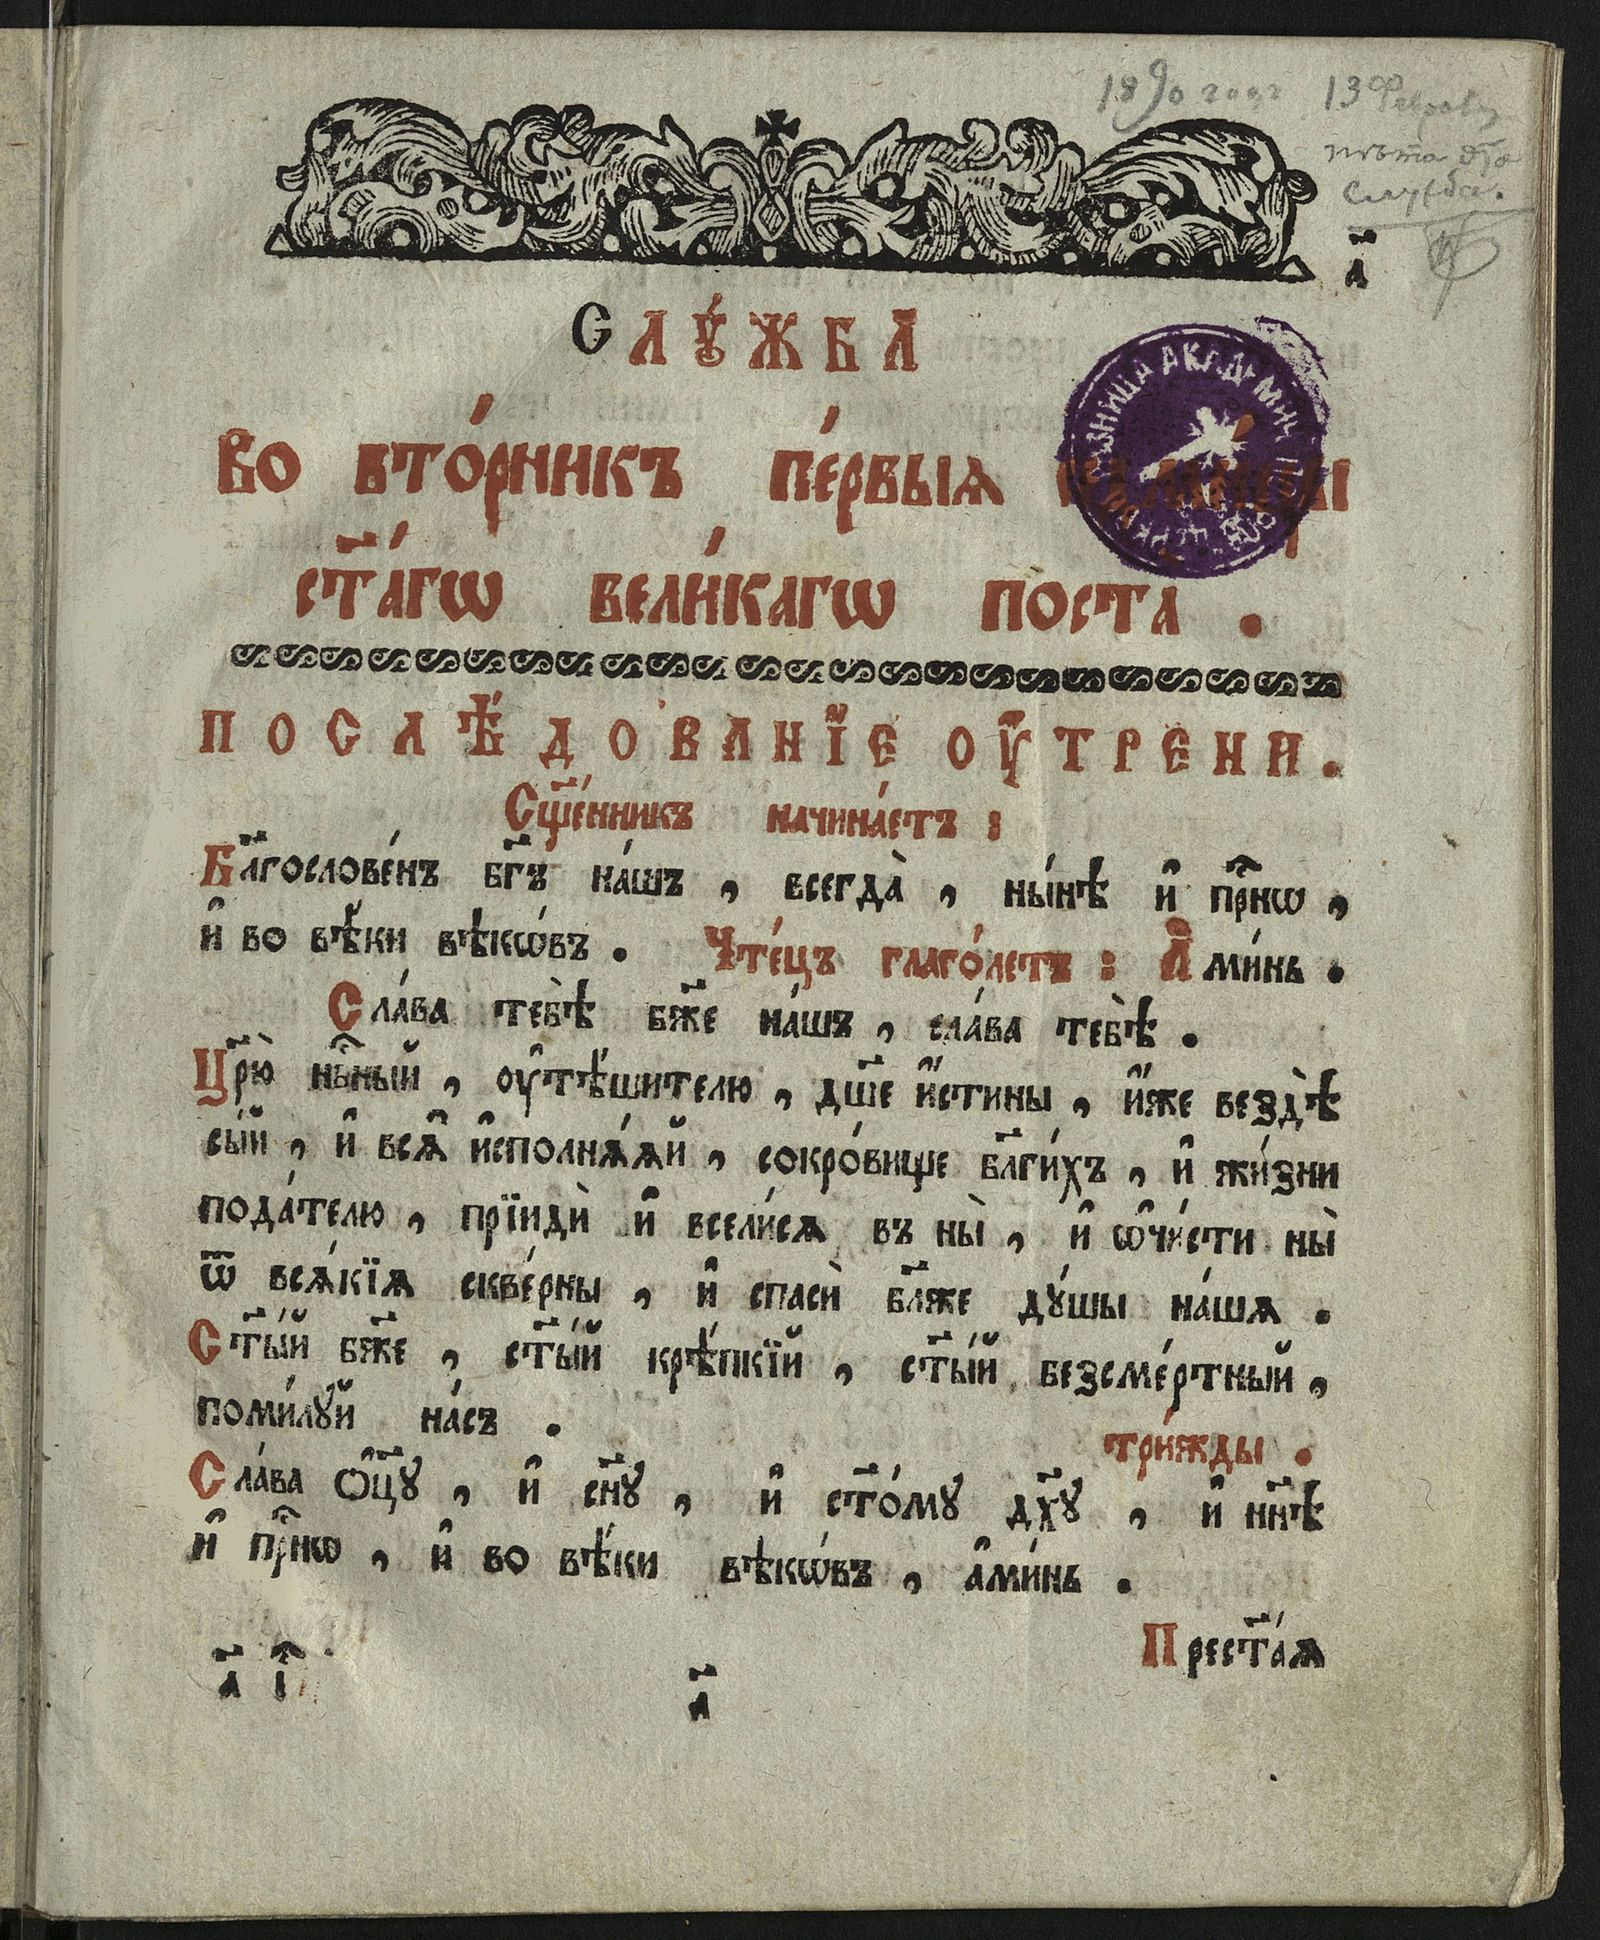 1890 года 13 Феврал
пѣта сїя
служба.
а҃
СЛꙋ́ЖБА
Во вто́рникъ пе́рвыѧ
ст҃а́гѡ вели́кагѡ поста .
ПОСЛѢ́ДОВАНЇЕ ОУ҆́ТРЕНИ.
Сщ҃е́нникъ начина́етъ :
Бл҃гослове́нъ бг҃ъ на́шъ , всегда̀ , ны́нѣ и҆ пр҇нѡ ,
и҆ во вѣ́ки вѣкѡ́въ . Чте́цъ глаго́летъ : А҆ми́нь .
Сла́ва тебѣ̀ бж҃е на́шъ , сла́ва тебѣ̀ .
Цр҃ю̀ нб҇ный , оу҆тѣ́шителю , дш҃е и҆́стины , и҆́же вездѣ̀
сы́й , и҆ всѧ҄ и҆сполнѧ́ѧй , сокро́вище бл҃ги́хъ , и҆ жи́зни
пода́телю , прїидѝ и҆ всели́сѧ въ ны̀ , и҆ ѡ҆чи́сти ны̀
ѿ всѧ́кїѧ скве́рны , и҆ спасѝ бл҃же дꙋ́шы на́шѧ .
Ст҃ы́й бж҃е , ст҃ы́й крѣ́пкїй , ст҃ы́й безсме́ртный ,
поми́лꙋй на́съ . три́жды .
Сла́ва Ѻ҆ц҃ꙋ̀ , и҆ сн҃ꙋ , и҆ ст҃о́мꙋ дх҃ꙋ , и҆ нн҃ѣ
и҆ пр҇нѡ , и҆ во вѣ́ки вѣкѡ́въ , а҆ми́нь .
Прест҃а́ѧ
а҃ і҃
а҃